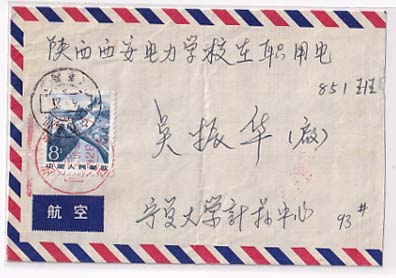 陕西西安电力学校在职用电
851班
吴振华(收)
8
中国人民邮政
航空
宁夏大学计算中心 93#